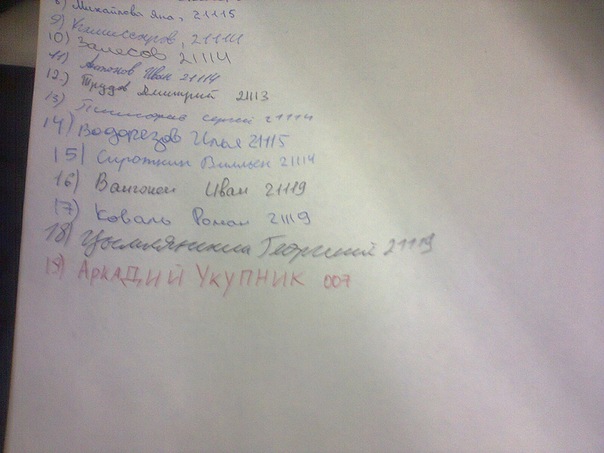 8) Михайлова Яна, 21115
9) Комиссаров, 21114
10) Залесов 21114
11) Иван 21114
12) Трудов Дмитрий 21113
13) Сергей 21114
14) Водорезов Илья 21115
15) Сироткин Вилльен 21114
16) Вангонен Иван 21119
17) Коваль Роман 21119
18) Георгий 21119
19) АРКАДИЙ УКУПНИК 007